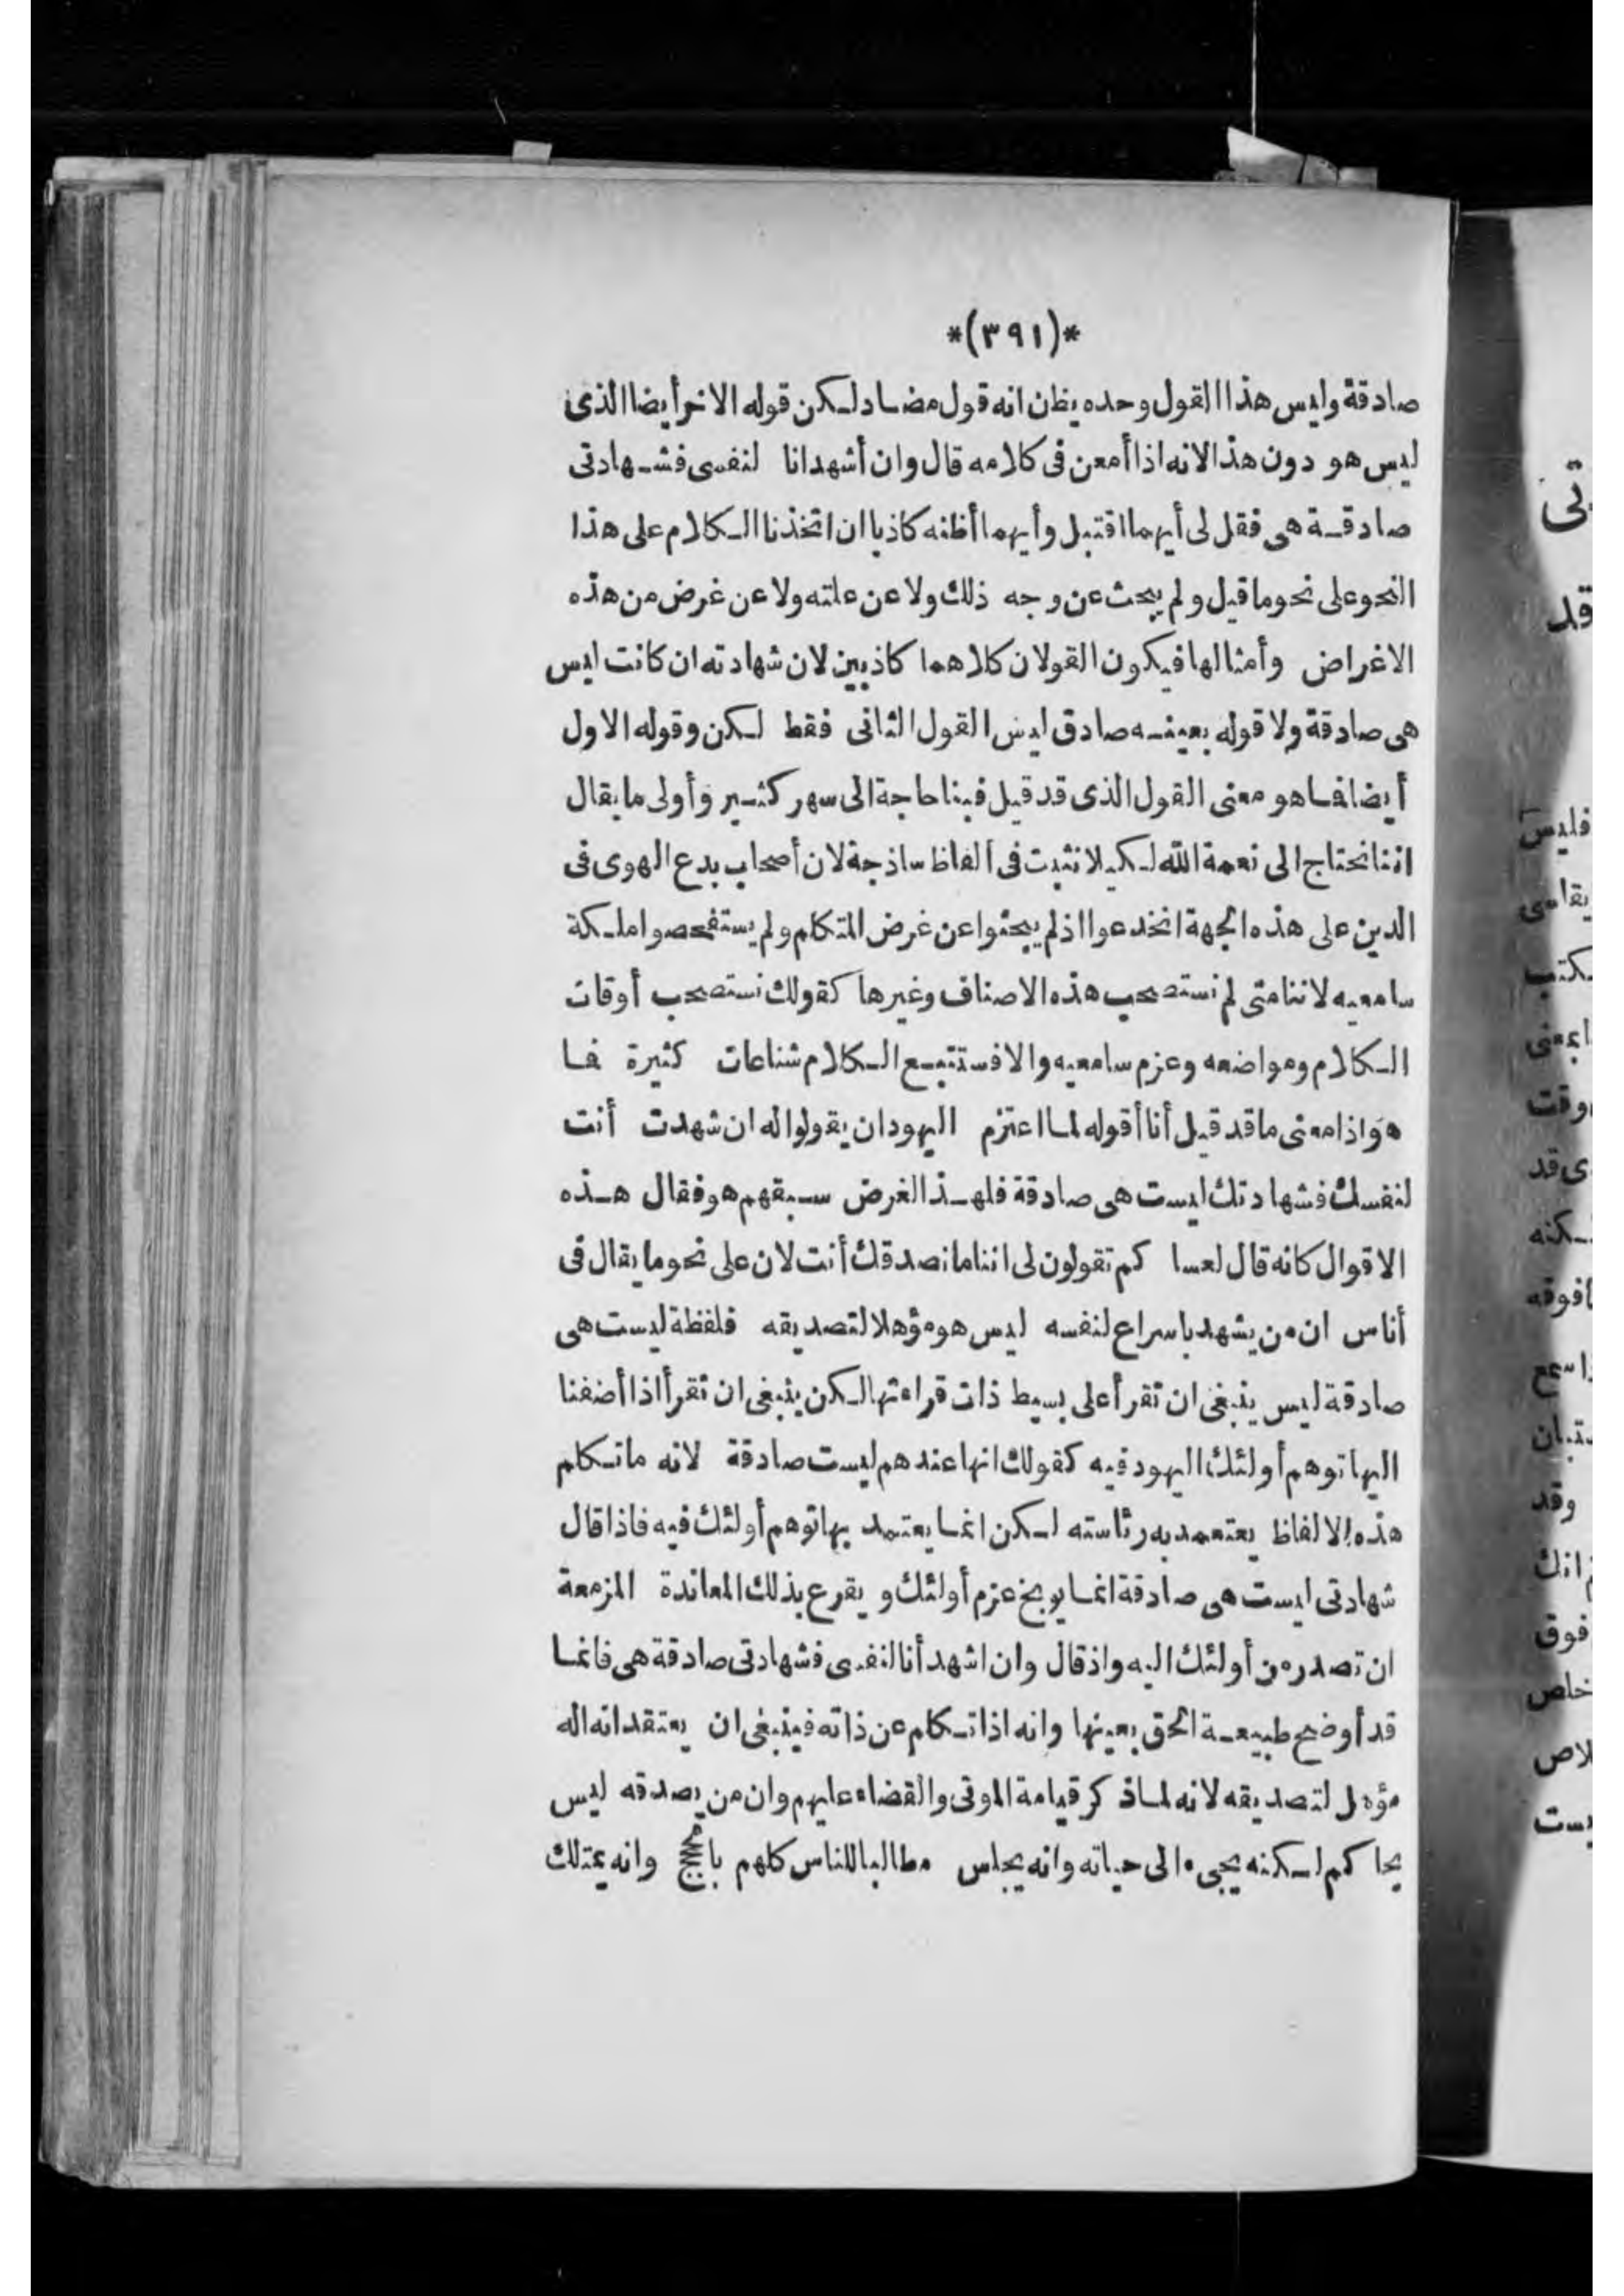 *(٣٩١)*
صادقة وليس هذا القول وحده يظن انه قول مضاد لكن قوله الاخر أيضا الذى
ليس هو دون هذا لانه اذا أمعن فى كلامه قال وان أشهد انا لنفسى فشهادتى
صادقة هى فقل لى أيهما اقتبل وأيهما أظنه كاذبا ان اتخذنا الكلام على هذا
النحو على نحو ما قيل ولم يبحث عن وجه ذلك ولا عن علته ولا عن غرض من هذه
الاغراض وأمثالها فيكون القولان كلاهما كاذبين لان شهادته ان كانت ليس
هى صادقة ولا قوله بعينه صادق ليس القول الثانى فقط لكن وقوله الاول
أيضا فما هو معنى القول الذى قد قيل فبنا حاجة الى سهر كثير وأولى ما يقال
اننا نحتاج الى نعمة الله لكيلا نثبت فى ألفاظ ساذجة لان أصحاب بدع الهوى فى
الدين على هذه الجهة انخدعوا اذ لم يبحثوا عن غرض المتكلم ولم يستفحصوا ملكة
سامعيه لاننا متى لم نستصحب هذه الاصناف وغيرها كقولك نستصحب أوقات
الكلام ومواضعه وعزم سامعيه والا فستتبع الكلام شناعات كثيرة فما
هو اذا معنى ما قد قيل أنا أقوله لما اعتزم اليهود ان يقولوا له ان شهدت أنت
لنفسك فشهادتك ليست هى صادقة فلهذا الغرض سبقهم هو فقال هذه
الاقوال كانه قال لعساكم تقولون لى اننا ما نصدقك أنت لان على نحو ما يقال فى
أناس ان من يشهد باسراع لنفسه ليس هو مؤهلا لتصديقه فلفظة ليست هى
صادقة ليس ينبغى ان تقرأ على بسيط ذات قراءتها لكن ينبغى ان تقرأ اذا أضفنا
اليها توهم أولئك اليهود فيه كقولك انها عندهم ليست صادقة لانه ما تكلم
هذه الالفاظ يعتمد به رئاسته لكن انما يعتمد بها توهم أولئك فيه فاذا قال
شهادتى ليست هى صادقة انما يوبخ عزم أولئك ويقرع بذلك المعاندة المزمعة
ان تصدر من أولئك اليه واذ قال وان اشهد أنا لنفسى فشهادتى صادقة هى فانما
قد أوضح طبيعة الحق بعينها وانه اذا تكلم عن ذاته فينبغى ان يعتقد انه اله
مؤهل لتصديقه لانه لما ذكر قيامة الموتى والقضاء عليهم وان من يصدقه ليس
يحاكم لكنه يجىء الى حياته وانه يجلس مطالبا للناس كلهم بالحجج وانه يمتلك